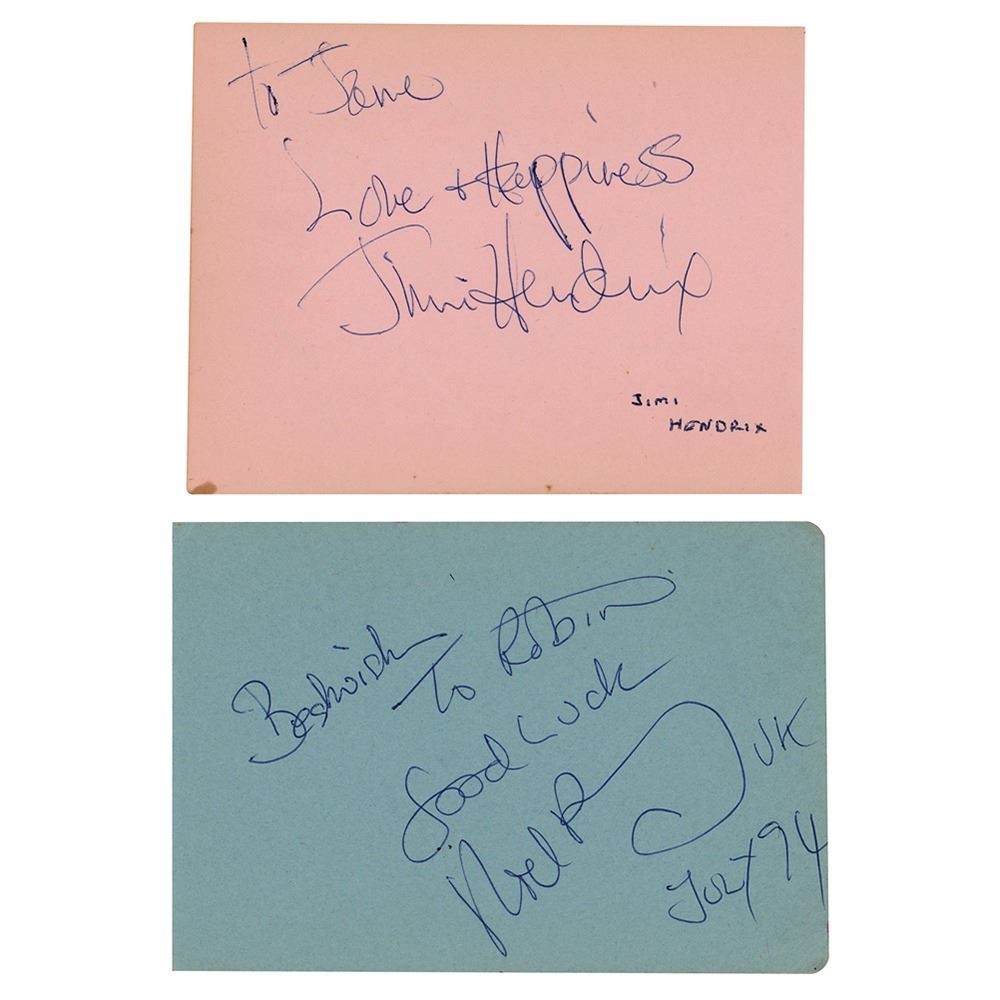 To Jane
Love + Happiness
Jimi Hendrix
JIMI
HENDRIX
Best wish
To Robin
Good Luck
Noel R
UK
JULY 94